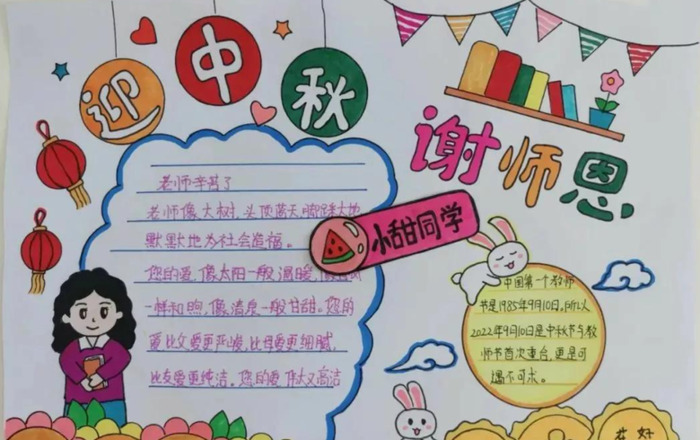 迎中秋
谢师恩
老师辛苦了
老师像大树，头顶蓝天，脚踩大地
默默地为社会造福。
小甜同学
您的爱，像太阳一般温暖，
一样和煦，像清泉一般甘甜。您的
爱比父爱更严峻，比母爱更细腻，
比友爱更纯洁。您的爱，伟大高洁
中国第一个教师
节是1985年9月10日，所以
2022年9月10日是中秋节与教
师节首次重合，更是可
遇不可求。